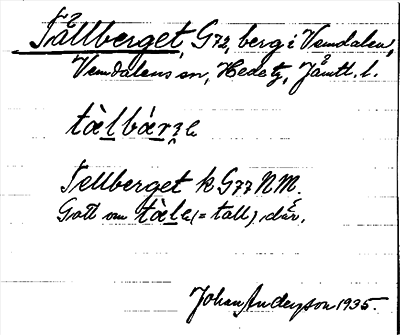 Tällberget, G72, berg i Vemdalen,
Vemdalens sn, Hede tg, Jämtl. l.
tàlbárʒe
Tellberget k G77 NM.
Gott om tàle (= tall) där.
Johan Anderson 1935.